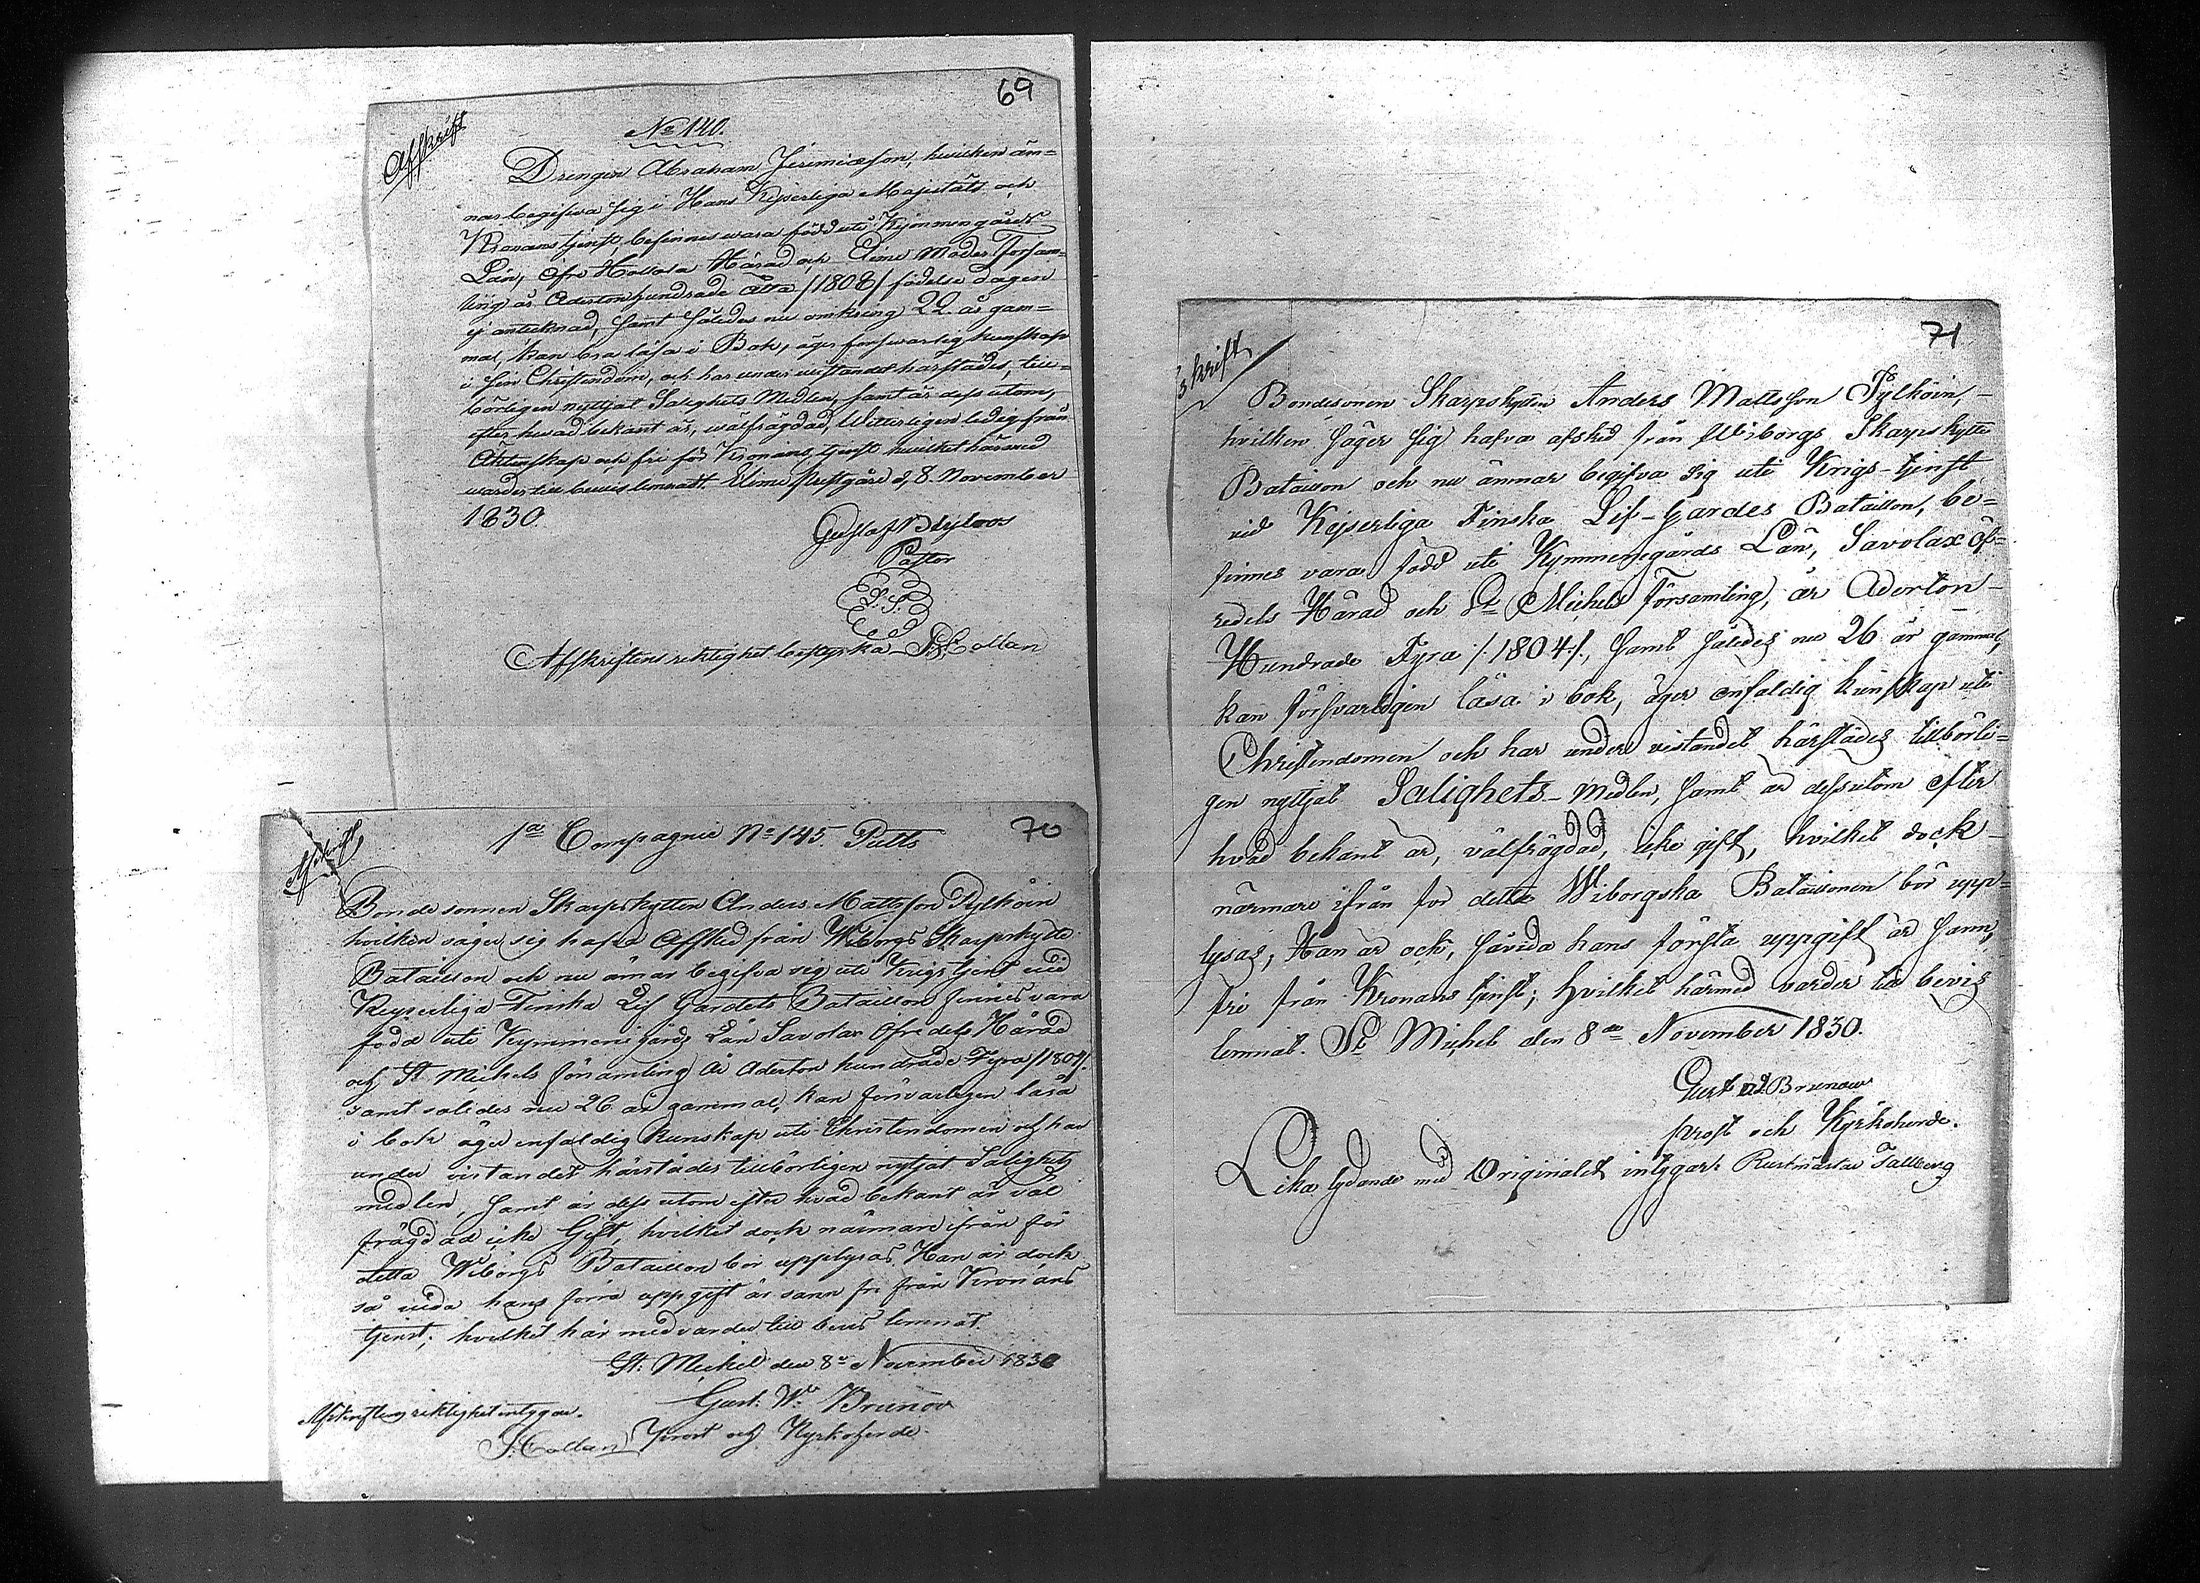 69
Affskrift
No 140.
Drengen Abraham Jeremiæson, hwilken äm=
nar begifwa sig i Hans Kejserliga Majestäts och
Kronans tjenst, befinnes wara född uti Kymmenegårds
Län, Öfre Hollola Härad och Elime Moder Försam=
ling år Adertonhundrade åtta /1808/ födelse dagen
ej antecknad, samt således nu omkring 22 år gam=
mal, kan bra läsa i Bok, äger forswarlig kunskap
i sin Christendom, och har under wistandet härstädes, till=
börligen nyttjat Salighets Medlen, samt är dess utom,
efter hwad bekant är, wälfrägdad, Witterligen ledig från
Äktenskap och fri för Kronans tjenst hwilket härmed
warder till bewis lemnadt. Elime Prestgård d. 8. November
1830.
Gustaf
Pastor
L.S.
Affskriftens riktighet bestyrka Collan
70
Afskrift
1a Compagnie No 145. Putts
Bondesonnen Skarpskytten Anders Mattsson Pylköin
hvilken säger sig hafva Affsked från Wiborgs Skarpskytte
Bataillon och nu ämar begifva sig uti Krigs tjenst vid
Keyserliga Finska Lif Gardets Bataillon finnes vara
född uti Kymmenegårds Län Savolax Öfredels Härad
och St Michels församling År Aderton hundrade Fyra /1804/.
samt således nu 26 år gammal, kan försvarligen läsa
i bok äger enfaldig Kunskap uti Christendomen och har
under vistandet härstädes tillbörligen nytjat Salighets
medlen, samt är dess utom efter hvad bekant är väl
frägdad icke Gift, hvilket dock närmare ifrån för
detta Wiborgs Bataillon bör upplysas. Han är dock
så vida hans förra uppgift är sann fri från Kronans
tjenst; hvilket här med varder till bevis lemnat.
St. Michel den 8de November 1830
Gust. Wm Brunov
Prost och Kyrkoherde.
Afskriftens riktighet intygar.
Collan
71
skrift
Bondesonen Skarpskytten Anders Mattsson Pylköin,
hvilken säger sig hafva afsked från Wiborgs Skarpskytte
Bataillon och nu ämnar begifva sig uti Krigs-tjenst
vid Kejserliga Finska Lif-Gardes Bataillon, be=
finnes vara född uti Kymmenegårds Län, Savolax Öf=
redels Härad och St Michels församling, år Aderton-
Hundrade Fyra /:1804:/, samt således nu 26 år gammal,
kan försvarligen läsa i bok, äger enfaldig kunskap uti
Christendomen och har under vistandet härstädes tillbörli=
gen nyttjat Salighets-medlen, samt är dessutom efter
hvad bekant är, välfrägdad, icke gift, hvilket dock
närmare ifrån for detta Wiborgska Bataillonen bör upp=
lysas, Han är ock, såvida hans första uppgift är sann,
fri från Kronans tjenst; hvilket härmed varder till bevis
lemnat. St Michel den 8de November 1830.
Gust Brunow
Prost och Kyrkoherde.
Lika lydande med Originalet intygar: Rustmästar Tallberg